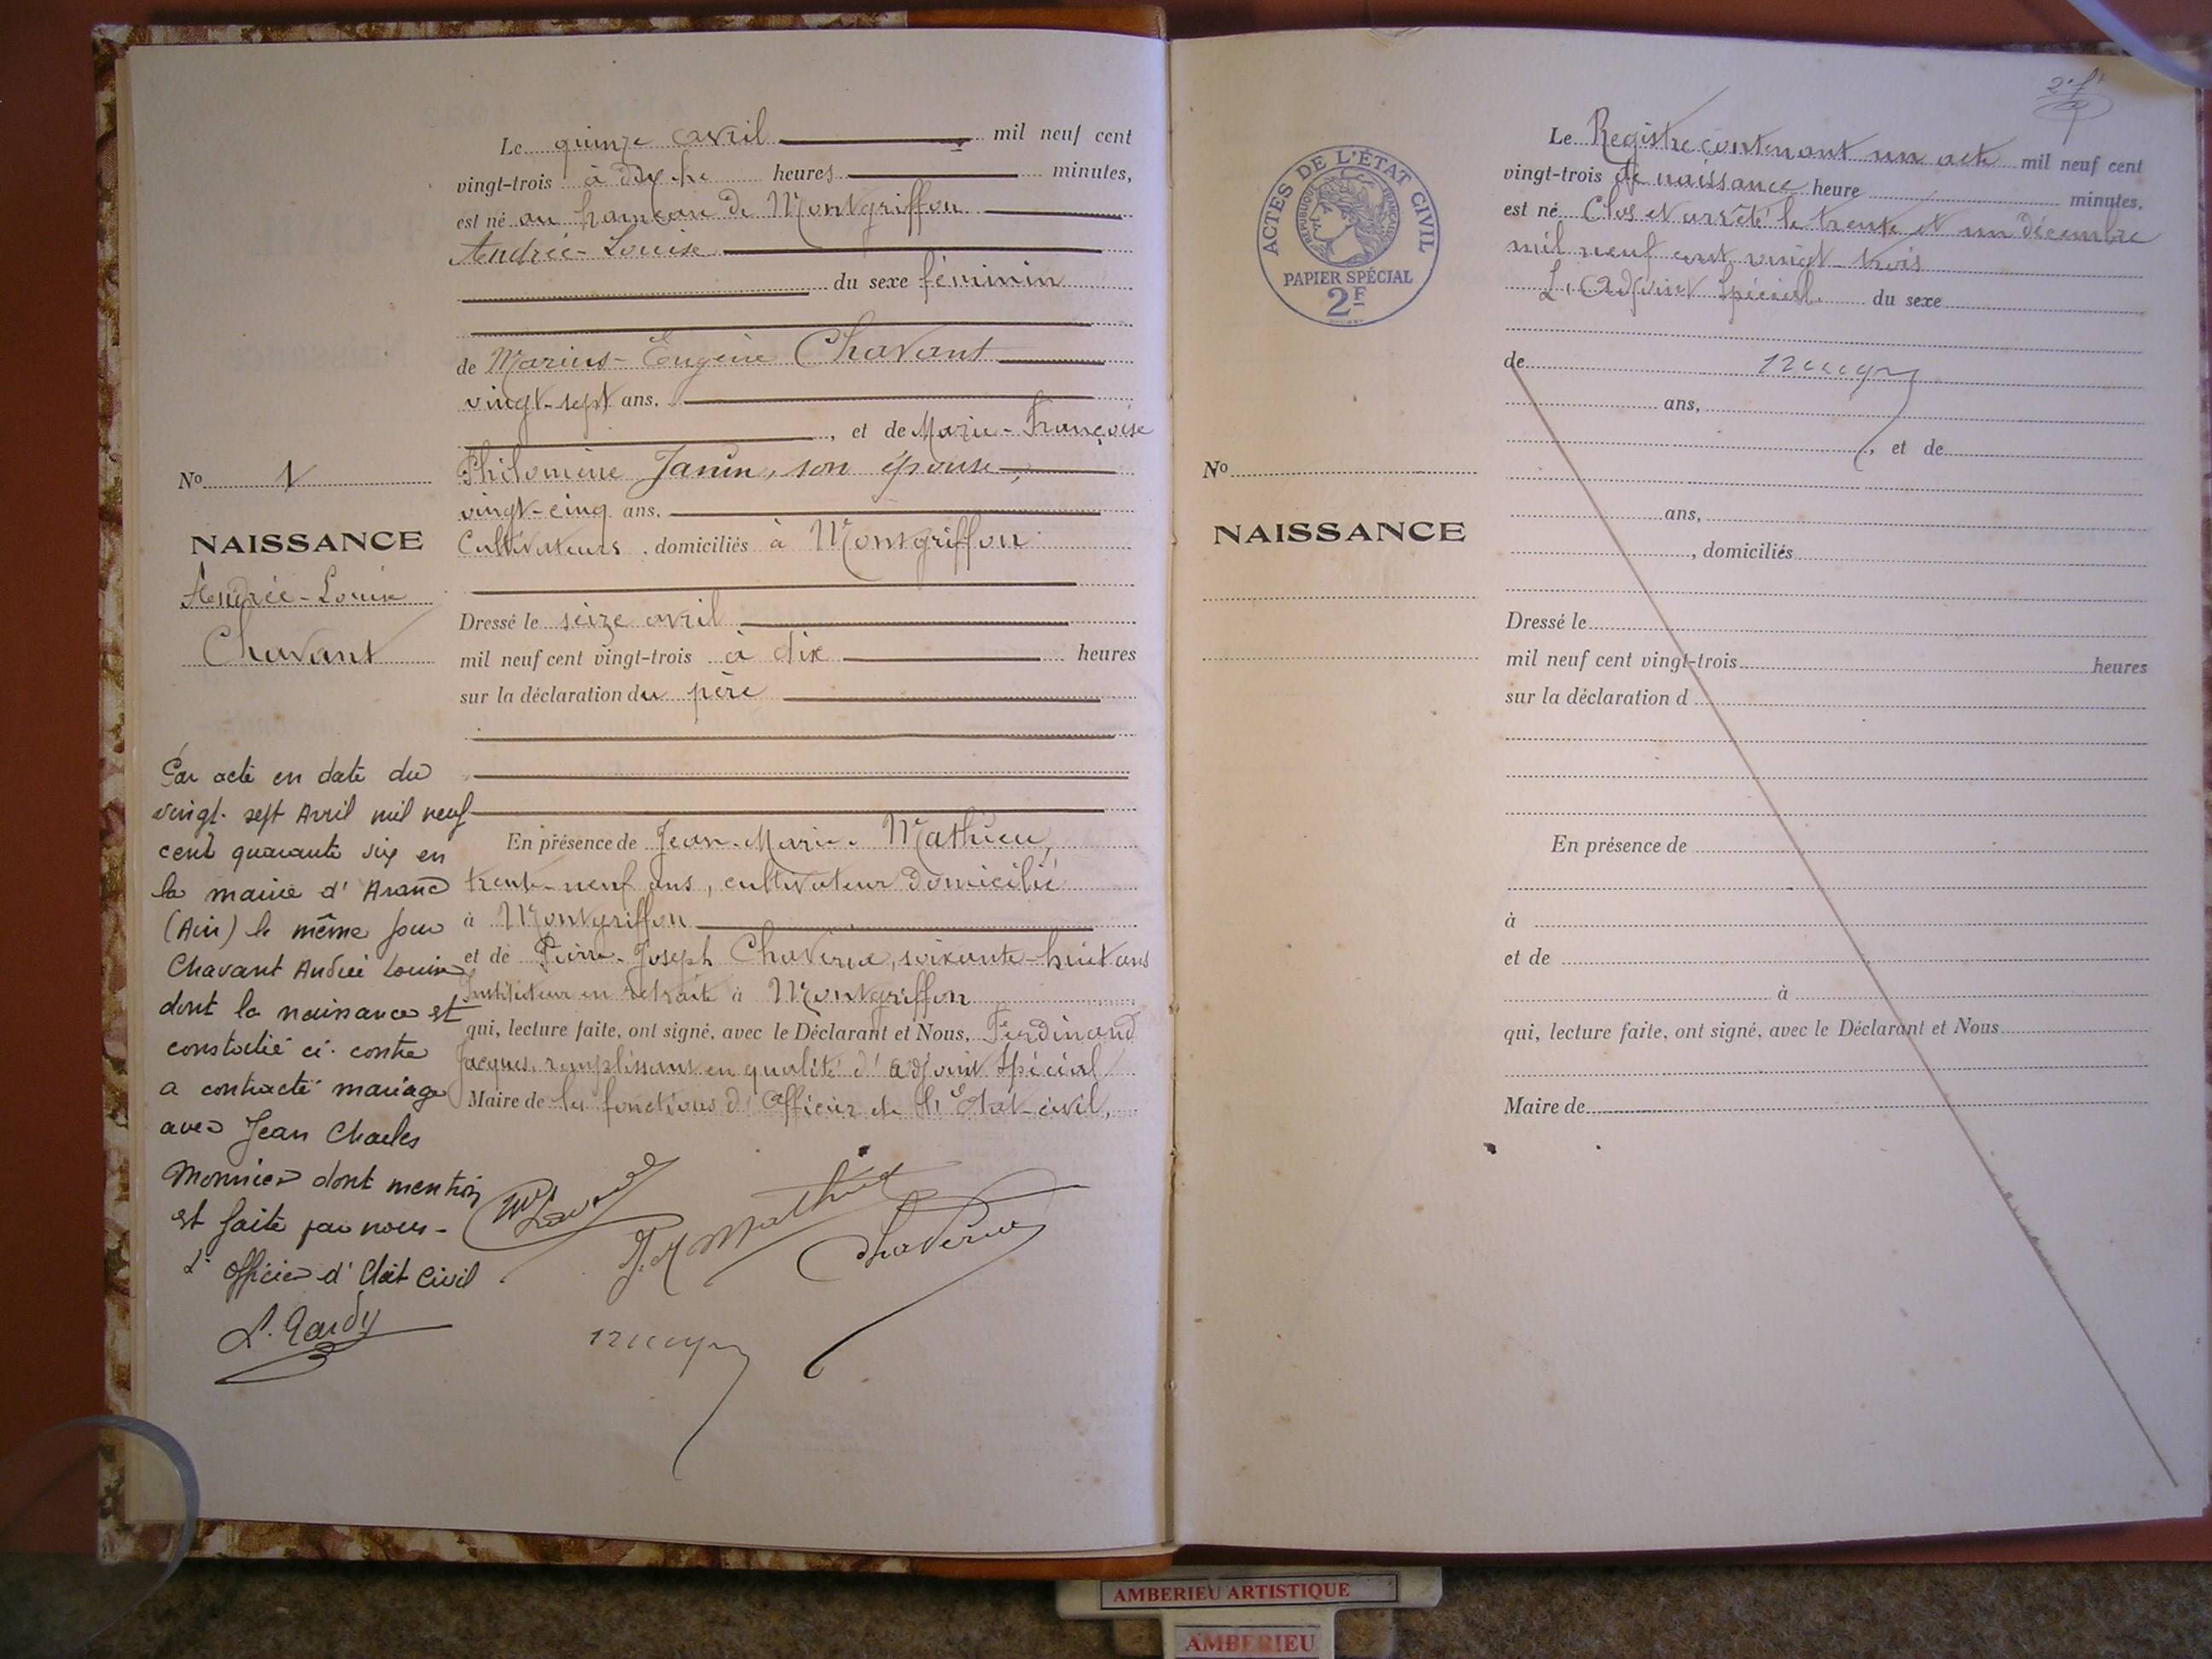 Le quinze avril mil neuf cent
vingt-trois à dix heures minutes,
est né au hameau de Montgriffon
Andrée-Louise
du sexe féminin
de Marius-Eugène Chavant
vingt-sept ans,
, et de Marie-Françoise
Philomène Janin, son épouse,
vingt-cinq ans,
Cultivateurs, domiciliés à Montgriffon
Dressé le seize avril
mil neuf cent vingt-trois à dix heures
sur la déclaration du père
En présence de Jean-Marie Mathieu,
trente-neuf ans, cultivateur domicilié
à Montgriffon
et de Pierre-Joseph Chaverieu, soixante-huit ans
Instituteur en retraite à Montgriffon
qui, lecture faite, ont signé, avec le Déclarant et Nous, Ferdinand
Jacques, remplissant en qualité d'adjoint Spécial
Maire de les fonctions d'Officier de l'Etat-civil,
J. M Mathieu
No 1
NAISSANCE
Andrée-Louise
Chavant
Par acte en date du
vingt-sept Avril mil neuf
cent quarante six en
la mairie d'Aranc
(Ain) le même jour
Chavant Andrée Louise
dont la naissance est
constatée ci-contre
a contracté mariage
avec Jean Charles
Monnier dont mention
est faite par nous-
L'officier d'Etat Civil
2e ft
ACTES DE L'ÉTAT CIVIL
RÉPUBLIQUE FRANÇAISE
PAPIER SPÉCIAL
2F
Le Registre contenant un acte mil neuf cent
vingt-trois de naissance heure minutes,
est né Clos et arrêté le trente et un décembre
mil neuf cent vingt-trois
L'Adjoint Spécial du sexe
de
ans,
, et de
No
ans,
NAISSANCE
, domiciliés
Dressé le
mil neuf cent vingt-trois heures
sur la déclaration d
En présence de
à
et de
à
qui, lecture faite, ont signé, avec le Déclarant et Nous
Maire de
AMBERIEU ARTISTIQUE
AMBERIEU